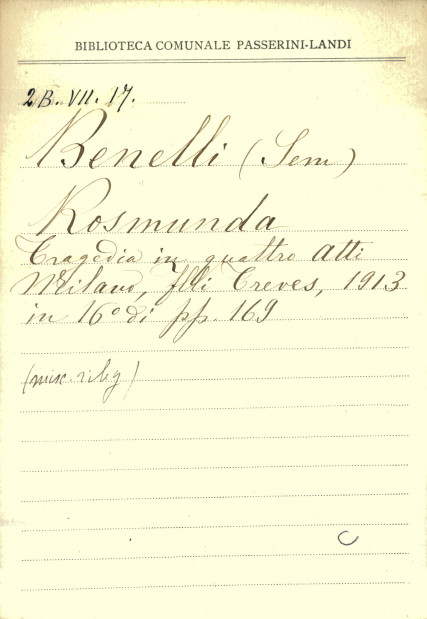 BIBLIOTECA COMUNALE PASSERINI-LANDI
2B. VII. 17.
Benelli (Sem)
Rosmunda
Tragedia in quattro atti
Milano, Flli Treves, 1913
in 16° di pp. 169
(misc. rileg)
C